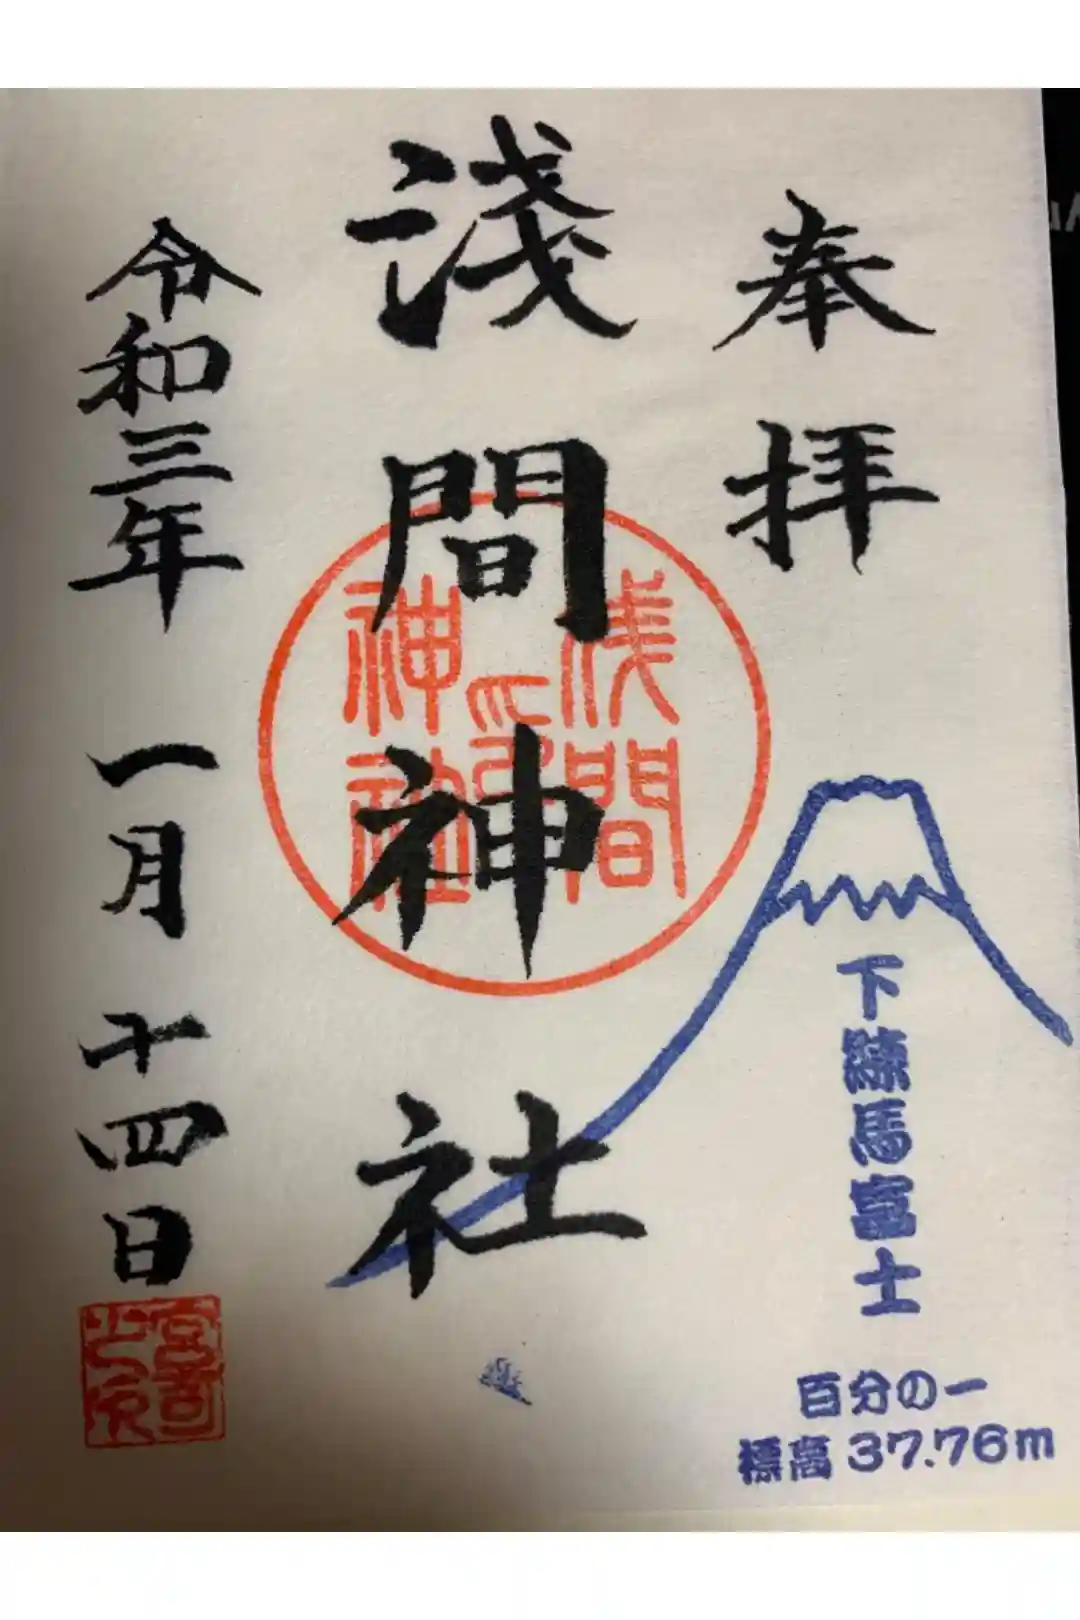 奉拝
淺間神社
令和三年 一月 十四日
浅間
神社
印
下練馬富士
百分の一
標高 37.76m